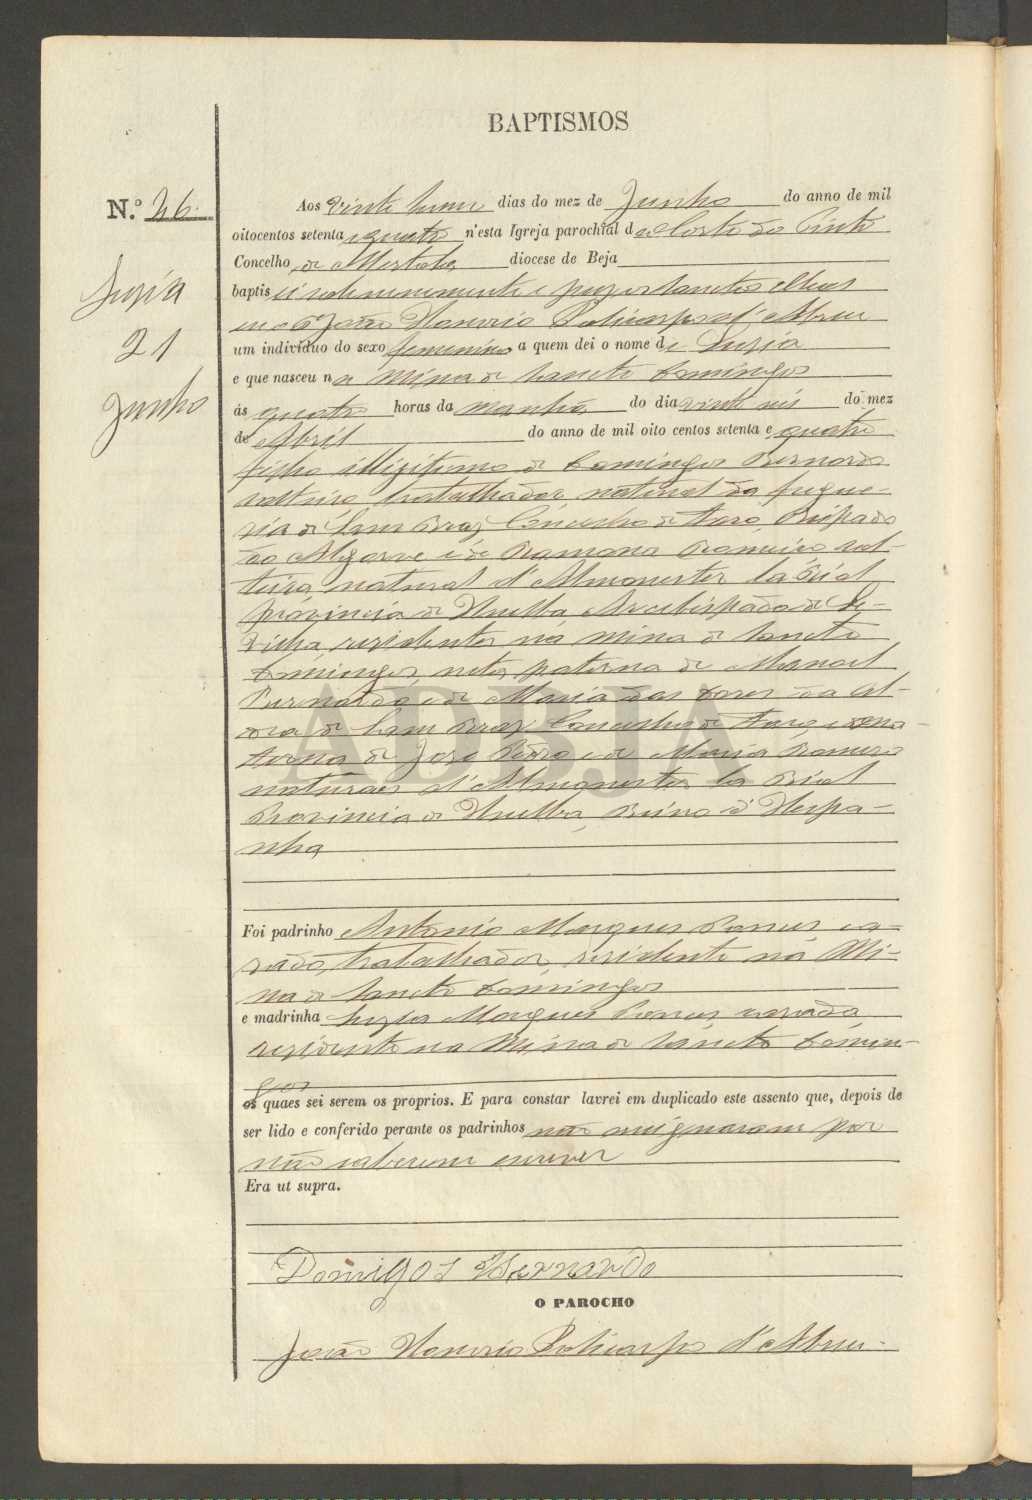 BAPTISMOS
N.º 26
Luzia
21
Junho
Aos vinte hum dias do mez de Junho do anno de mil
oitocentos setenta e quatro n'esta Igreja parochial de Corte do Pinto
Concelho de Mertola diocese de Beja
baptisei solemnemente e puz os Sanctos Oleos
eu o P.e João Honorio Policarpo d'Abreu
um individuo do sexo femenino a quem dei o nome de Luzia
e que nasceu na Mina de Sancto Domingos
ás quatro horas da manhã do dia vinte seis do mez
de Abril do anno de mil oito centos setenta e quatro
filha illigitima de Domingos Bernardo
solteiro trabalhador natural da fregue-
zia de Sam Braz Concelho de Faro, Bispado
do Algarve e de Ramona Romeiro sol-
teira natural d'Almonester la Rial
provincia de Huelba Arcebispado de Se-
vilha, residentes na mina de Sancto
Domingos, neta paterna de Manoel
Bernardo e de Maria das Dores da Al-
de Sam Braz Concelho de Faro, e ma-
terna de José Pedro e de Maria Romero
naturaes d'Almonester la Rial
Provincia de Huelba, Reino d'Hespa-
nha
Foi padrinho Antonio Marques ca-
sado, trabalhador, residente na Mi-
na de Sancto Domingos
e madrinha Luzia Marques casada
residente na Mina de Sancto Domin-
gos
os quaes sei serem os proprios. E para constar lavrei em duplicado este assento que, depois de
ser lido e conferido perante os padrinhos não assignaram por
não saberem escrever
Era ut supra.
Domigos Bernardo
O PAROCHO
João Honorio Policarpo d'Abreu
ADBJA